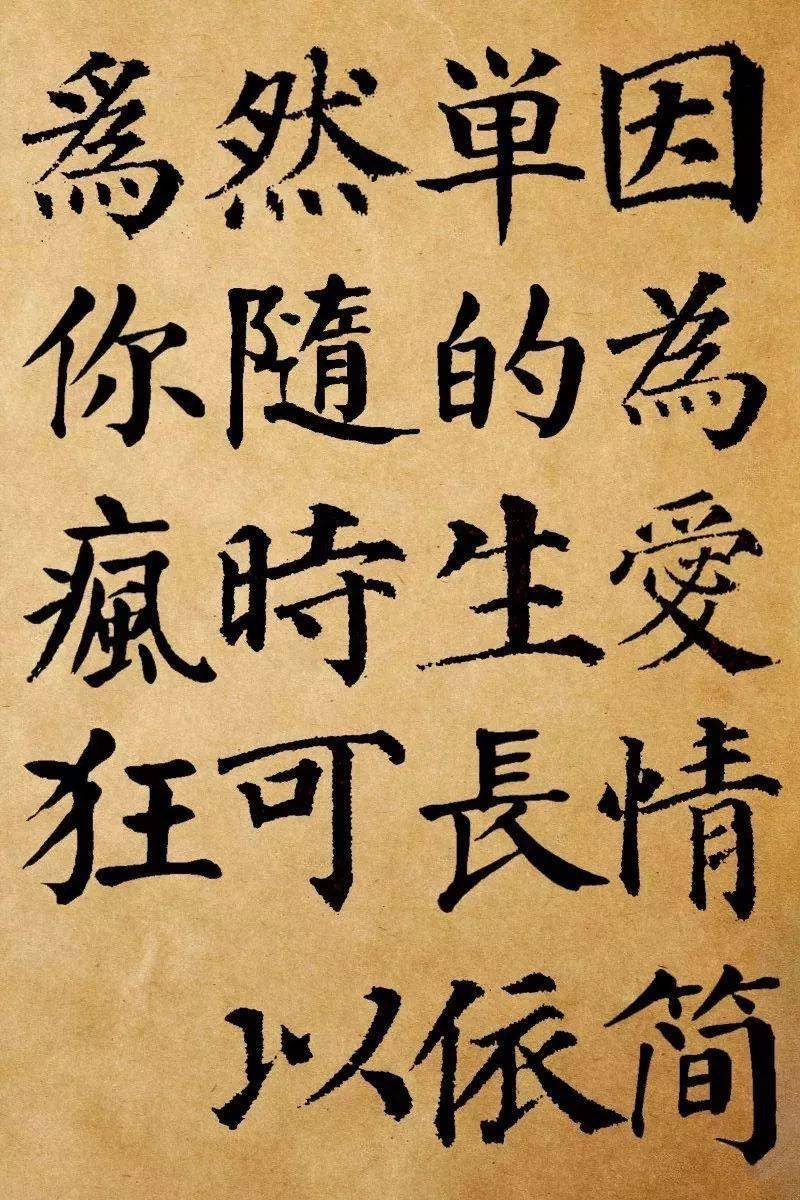 因為愛情简
単的生長依
然隨時可以
為你瘋狂